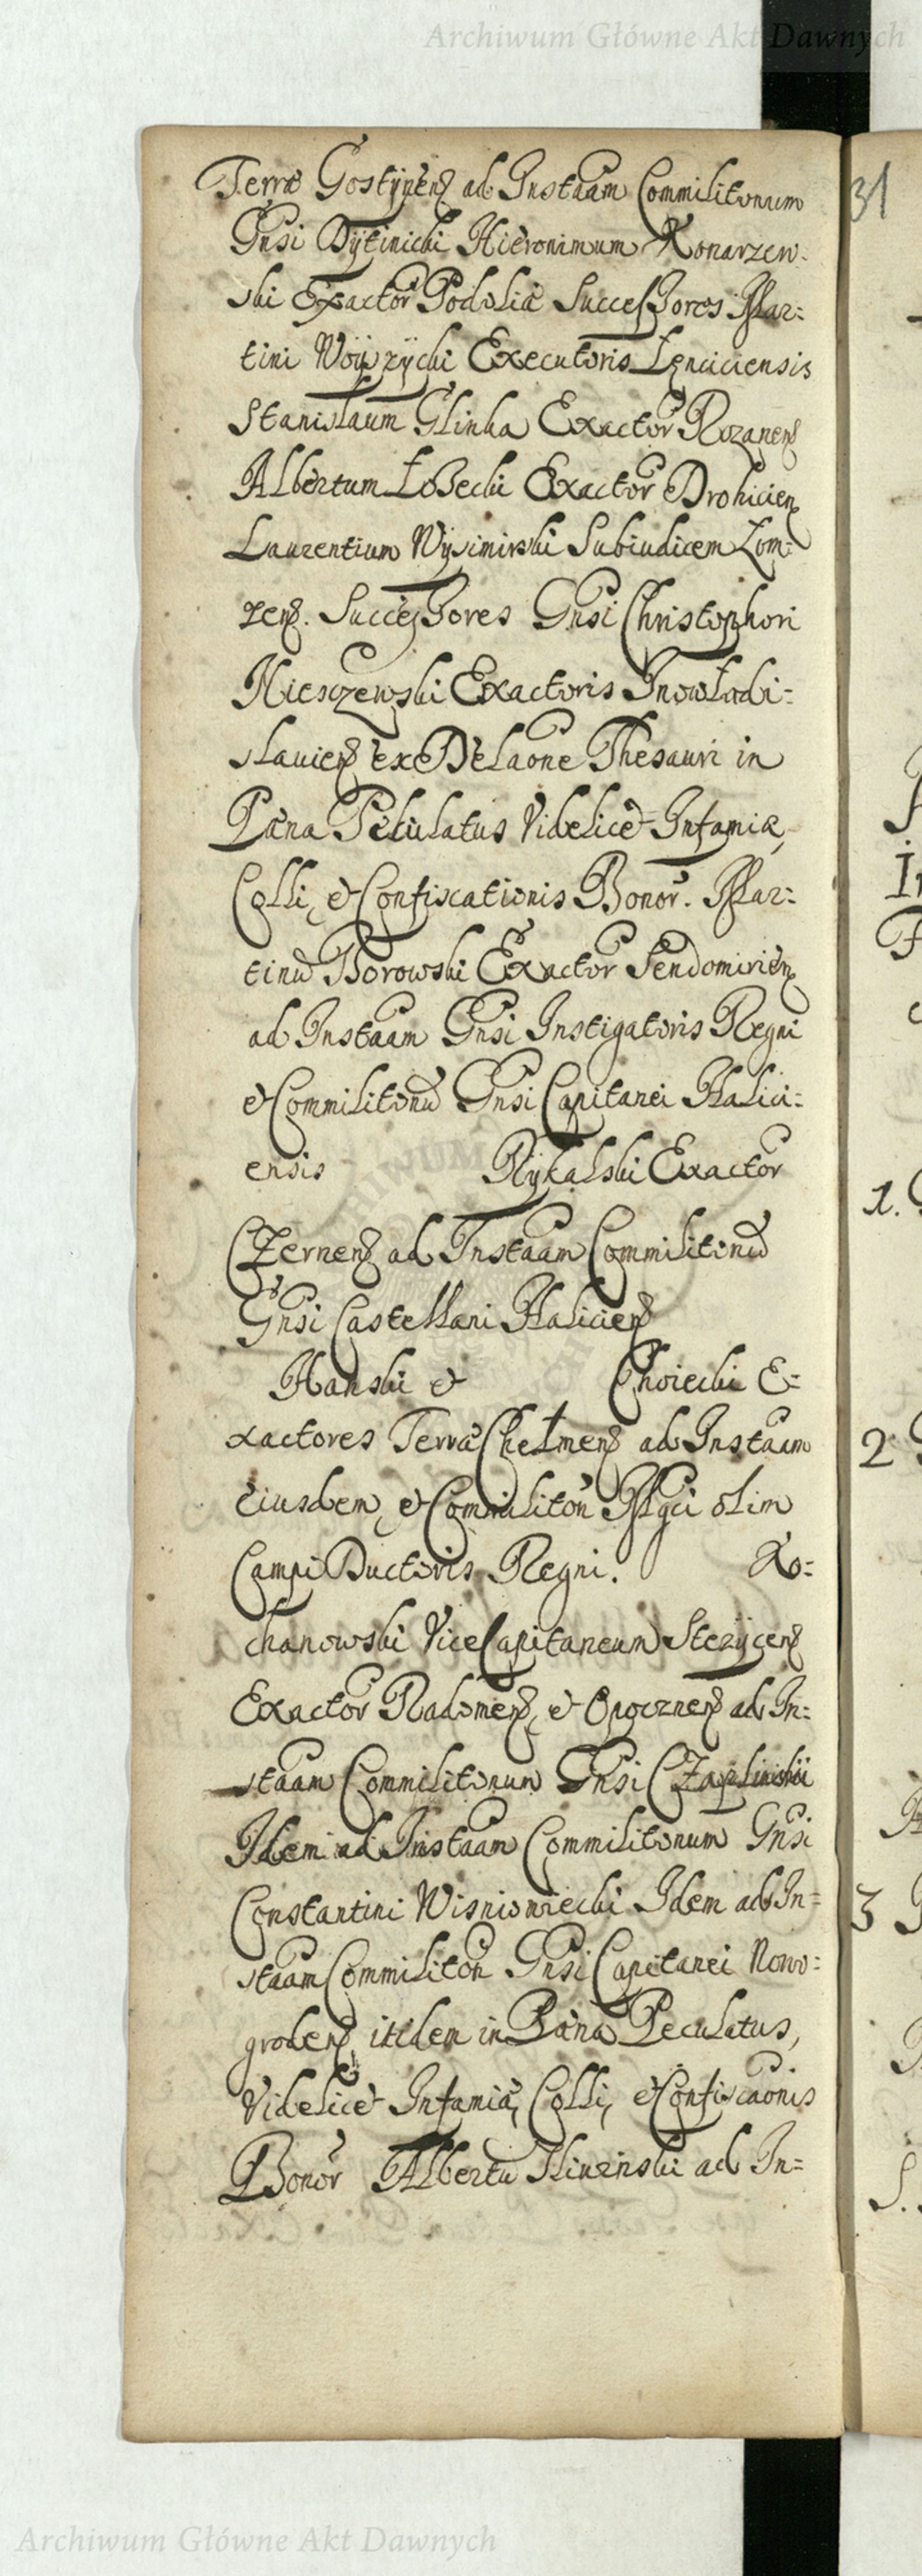 Archiwum Główne Akt Dawnych
Terræ Gostÿnen̄ ad Instaām Commilitonum
Gn̄si Dÿtinicki Hieronimum Konarzew-
ski Exactor̄ Podoliæ Successores Mar:
tini Woÿzÿcki Executoris Łęnciciensis
Stanislaum Glinka Exactor̄ Rozanen̄
Albertum Łosecki Exactor̄ Drohicien̄
Laurentium Wysimirski Subiudicem Łom:
zen̄. Successores Gn̄si Christophori
Mieszewski Exactoris Inowładi=
slauien̄ ex Delaōne Thesauri in
Pæna Peculatus Videlicet Infamiæ,
Colli, et Confiscationis Bonor̄. Mar:
tinū Borowski Exactor̄ Sendomirien̄
ad Instaām Gn̄si Instigatoris Regni
et Commilitonū Gn̄si Capitanei Halici:
ensis Rÿkalski Exactor̄
Czernen̄ ad Instaām Commilitonū
Gn̄si Castellani Halicien̄
Hanski et Choiecki E=
xactores Terræ Chełmen̄ ad Instaām
Eiusdem, et Commiliton̄ Mgci olim
Campi Ductoris Regni. Ko=
chanowski ViceCapitaneum Stezÿcen̄
Exactor̄ Radomen̄, et Opocznen̄ ad In=
staām Commilitonum Gn̄si Czaplinskii
Idem ad Instaām Commilitonum Gn̄si
Constantini Wisniowiecki Idem ad In=
staām Commiliton̄ Gn̄si Capitanei Nowo=
groden̄, itidem in Pæna Peculatus,
Videlicet Infamiæ, Colli, et Confiscaōnis
Bonor̄ Albertū Sliwinski ad In=
31
1.
2
3
Archiwum Główne Akt Dawnych